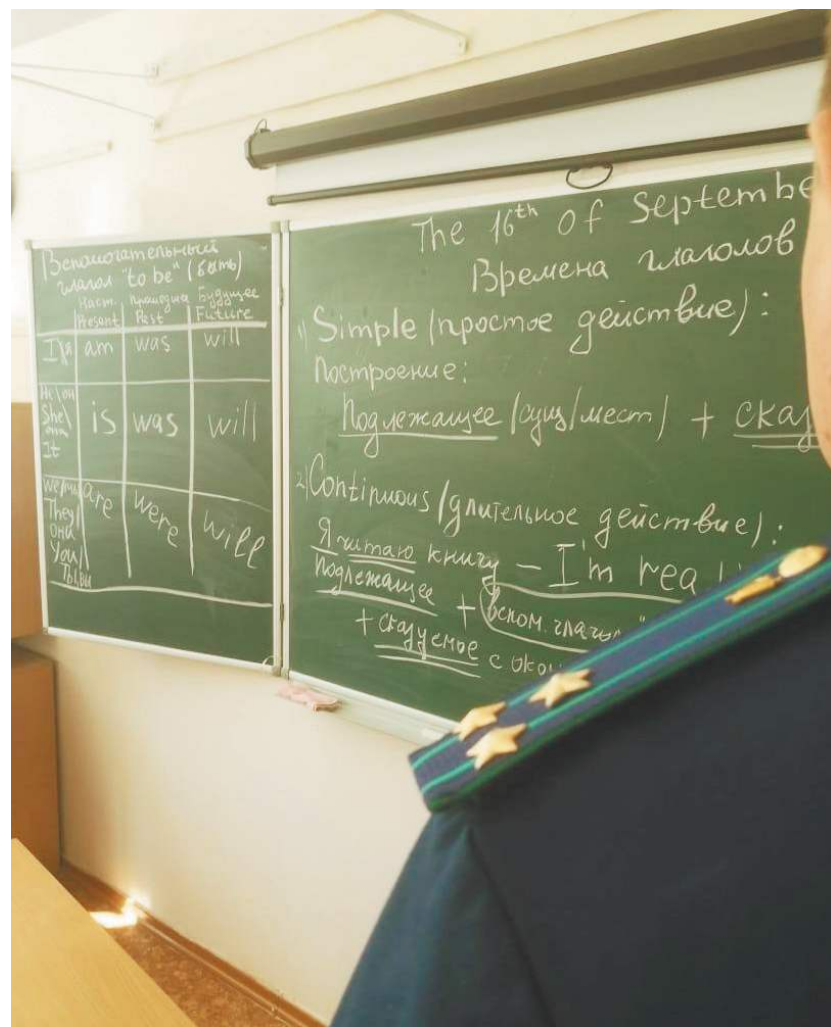 Вспомогательный
глагол "to be" (быть)
Наст. Прошедш Будущее
Present Past Future
I\я am was will
He\он
She\
она
It
is was will
We/мы
They/
они
You/
Ты,вы
are were will
The 16th of Septembe
Времена глаголов
1) Simple (простое действие):
Построение:
Подлежащее (сущ/мест) + сказ
2) Continuous (длительное действие):
Я читаю книгу – I'm rea
Подлежащее + вспом. глагол "
+ сказуемое с око